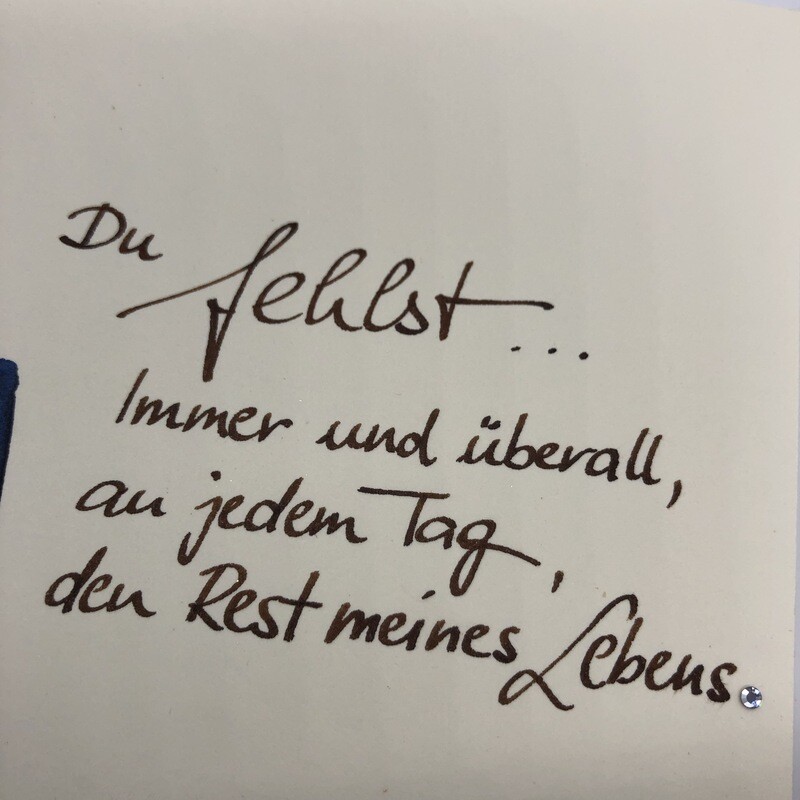 Du
fehlst...
Immer und überall,
an jedem Tag,
den Rest meines Lebens.